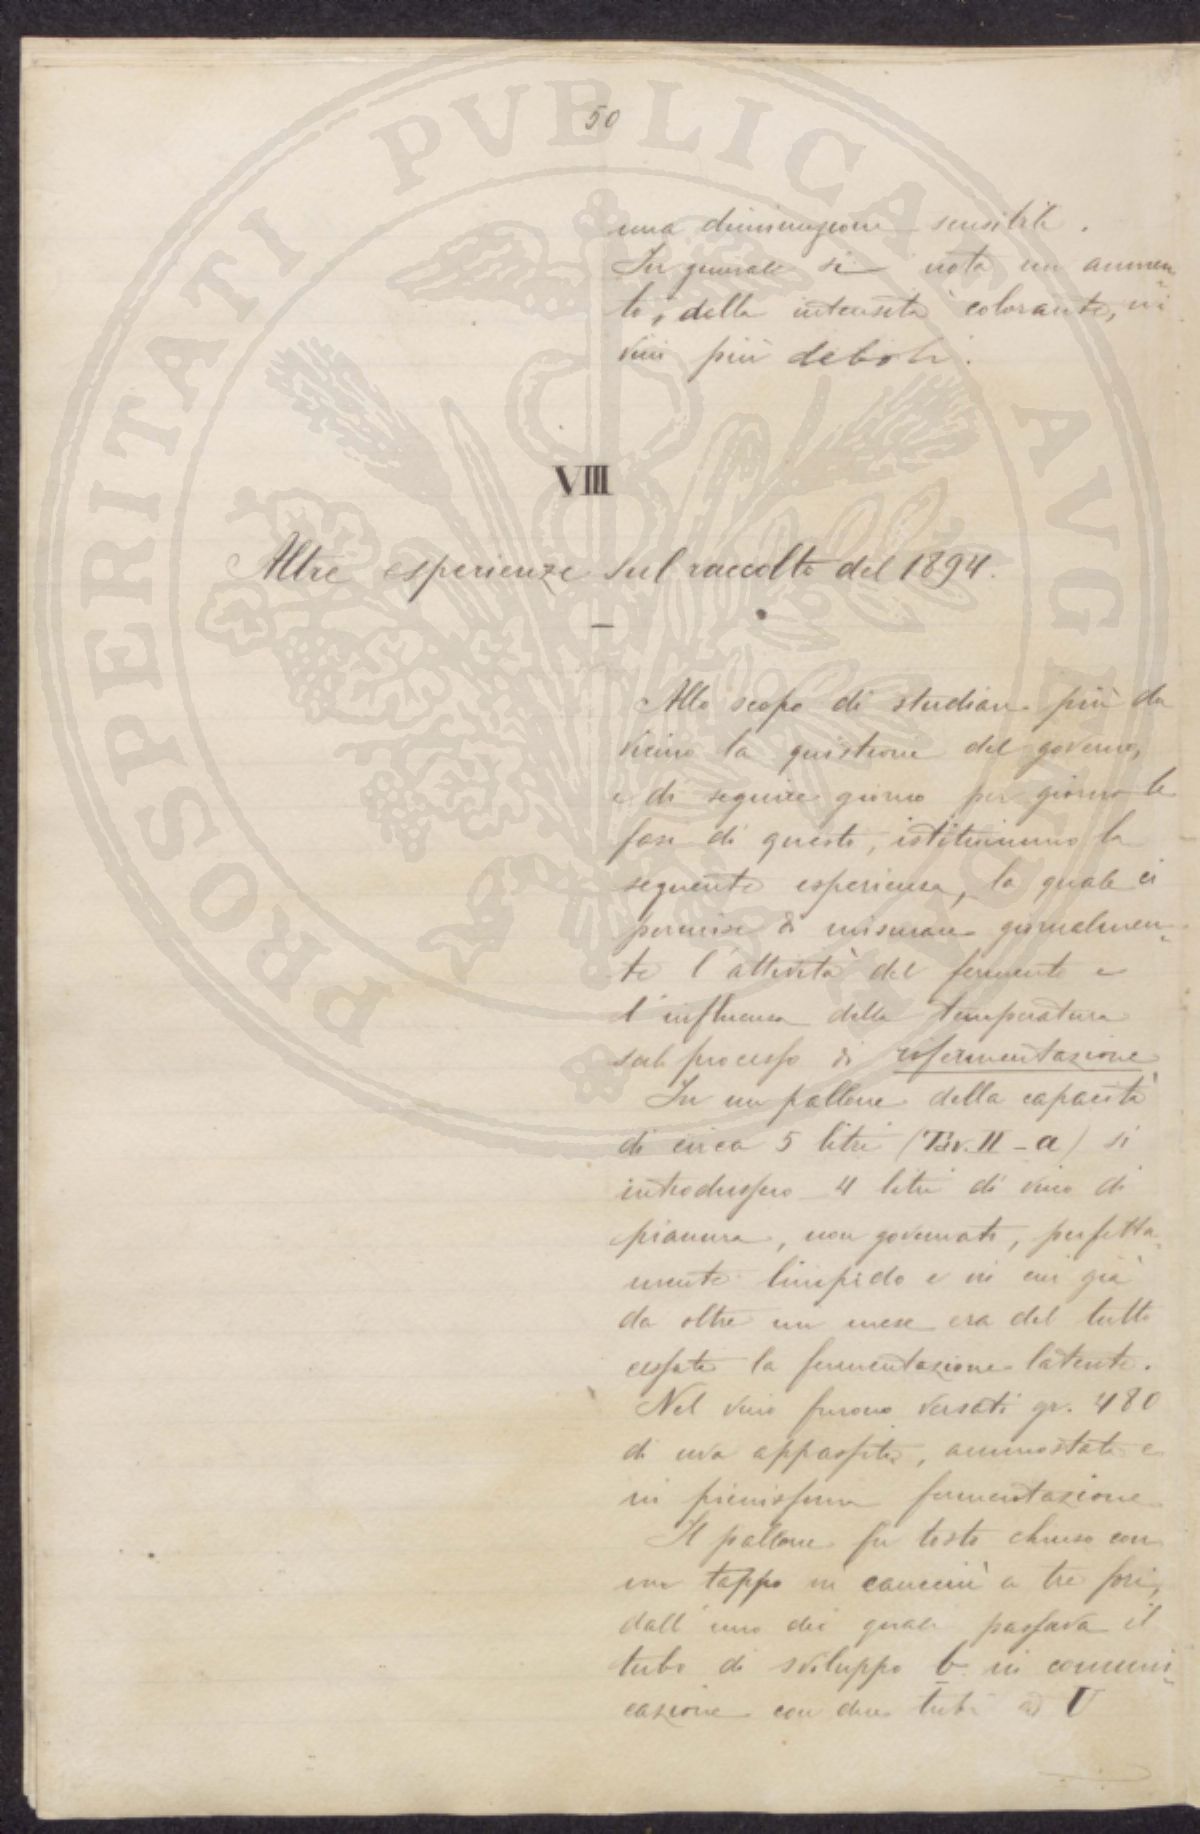 50
una diminuzione sensibile.
In generale si nota un aumen-
to, della intensità colorante, nei
vini più deboli.
VIII
Altre esperienze sul raccolto del 1894.
Allo scopo di studiare più da
vicino la quistione del governo,
e di seguire giorno per giorno le
fasi di questo, istituimmo la
seguente esperienza, la quale ci
permise di misurare giornalmen-
te l'attività del fermento e
l'influenza della temperatura
sul processo di rifermentazione
In un pallone della capacità
di circa 5 litri (Tav. II - a) si
introdussero 4 litri di vino di
pianura, non governato, perfetta-
mente limpido e in cui già
da oltre un mese era del tutto
cessata la fermentazione latente.
Nel vino furono versati gr. 480
di uva appassita, ammostata e
in pienissima fermentazione
Il pallone fu tosto chiuso con
un tappo in caucciù a tre fori,
dall'uno dei quali passava il
tubo di sviluppo b in comuni-
cazione con due tubi ad U
PROSPERITATI PVBLICAE AVGENDAE